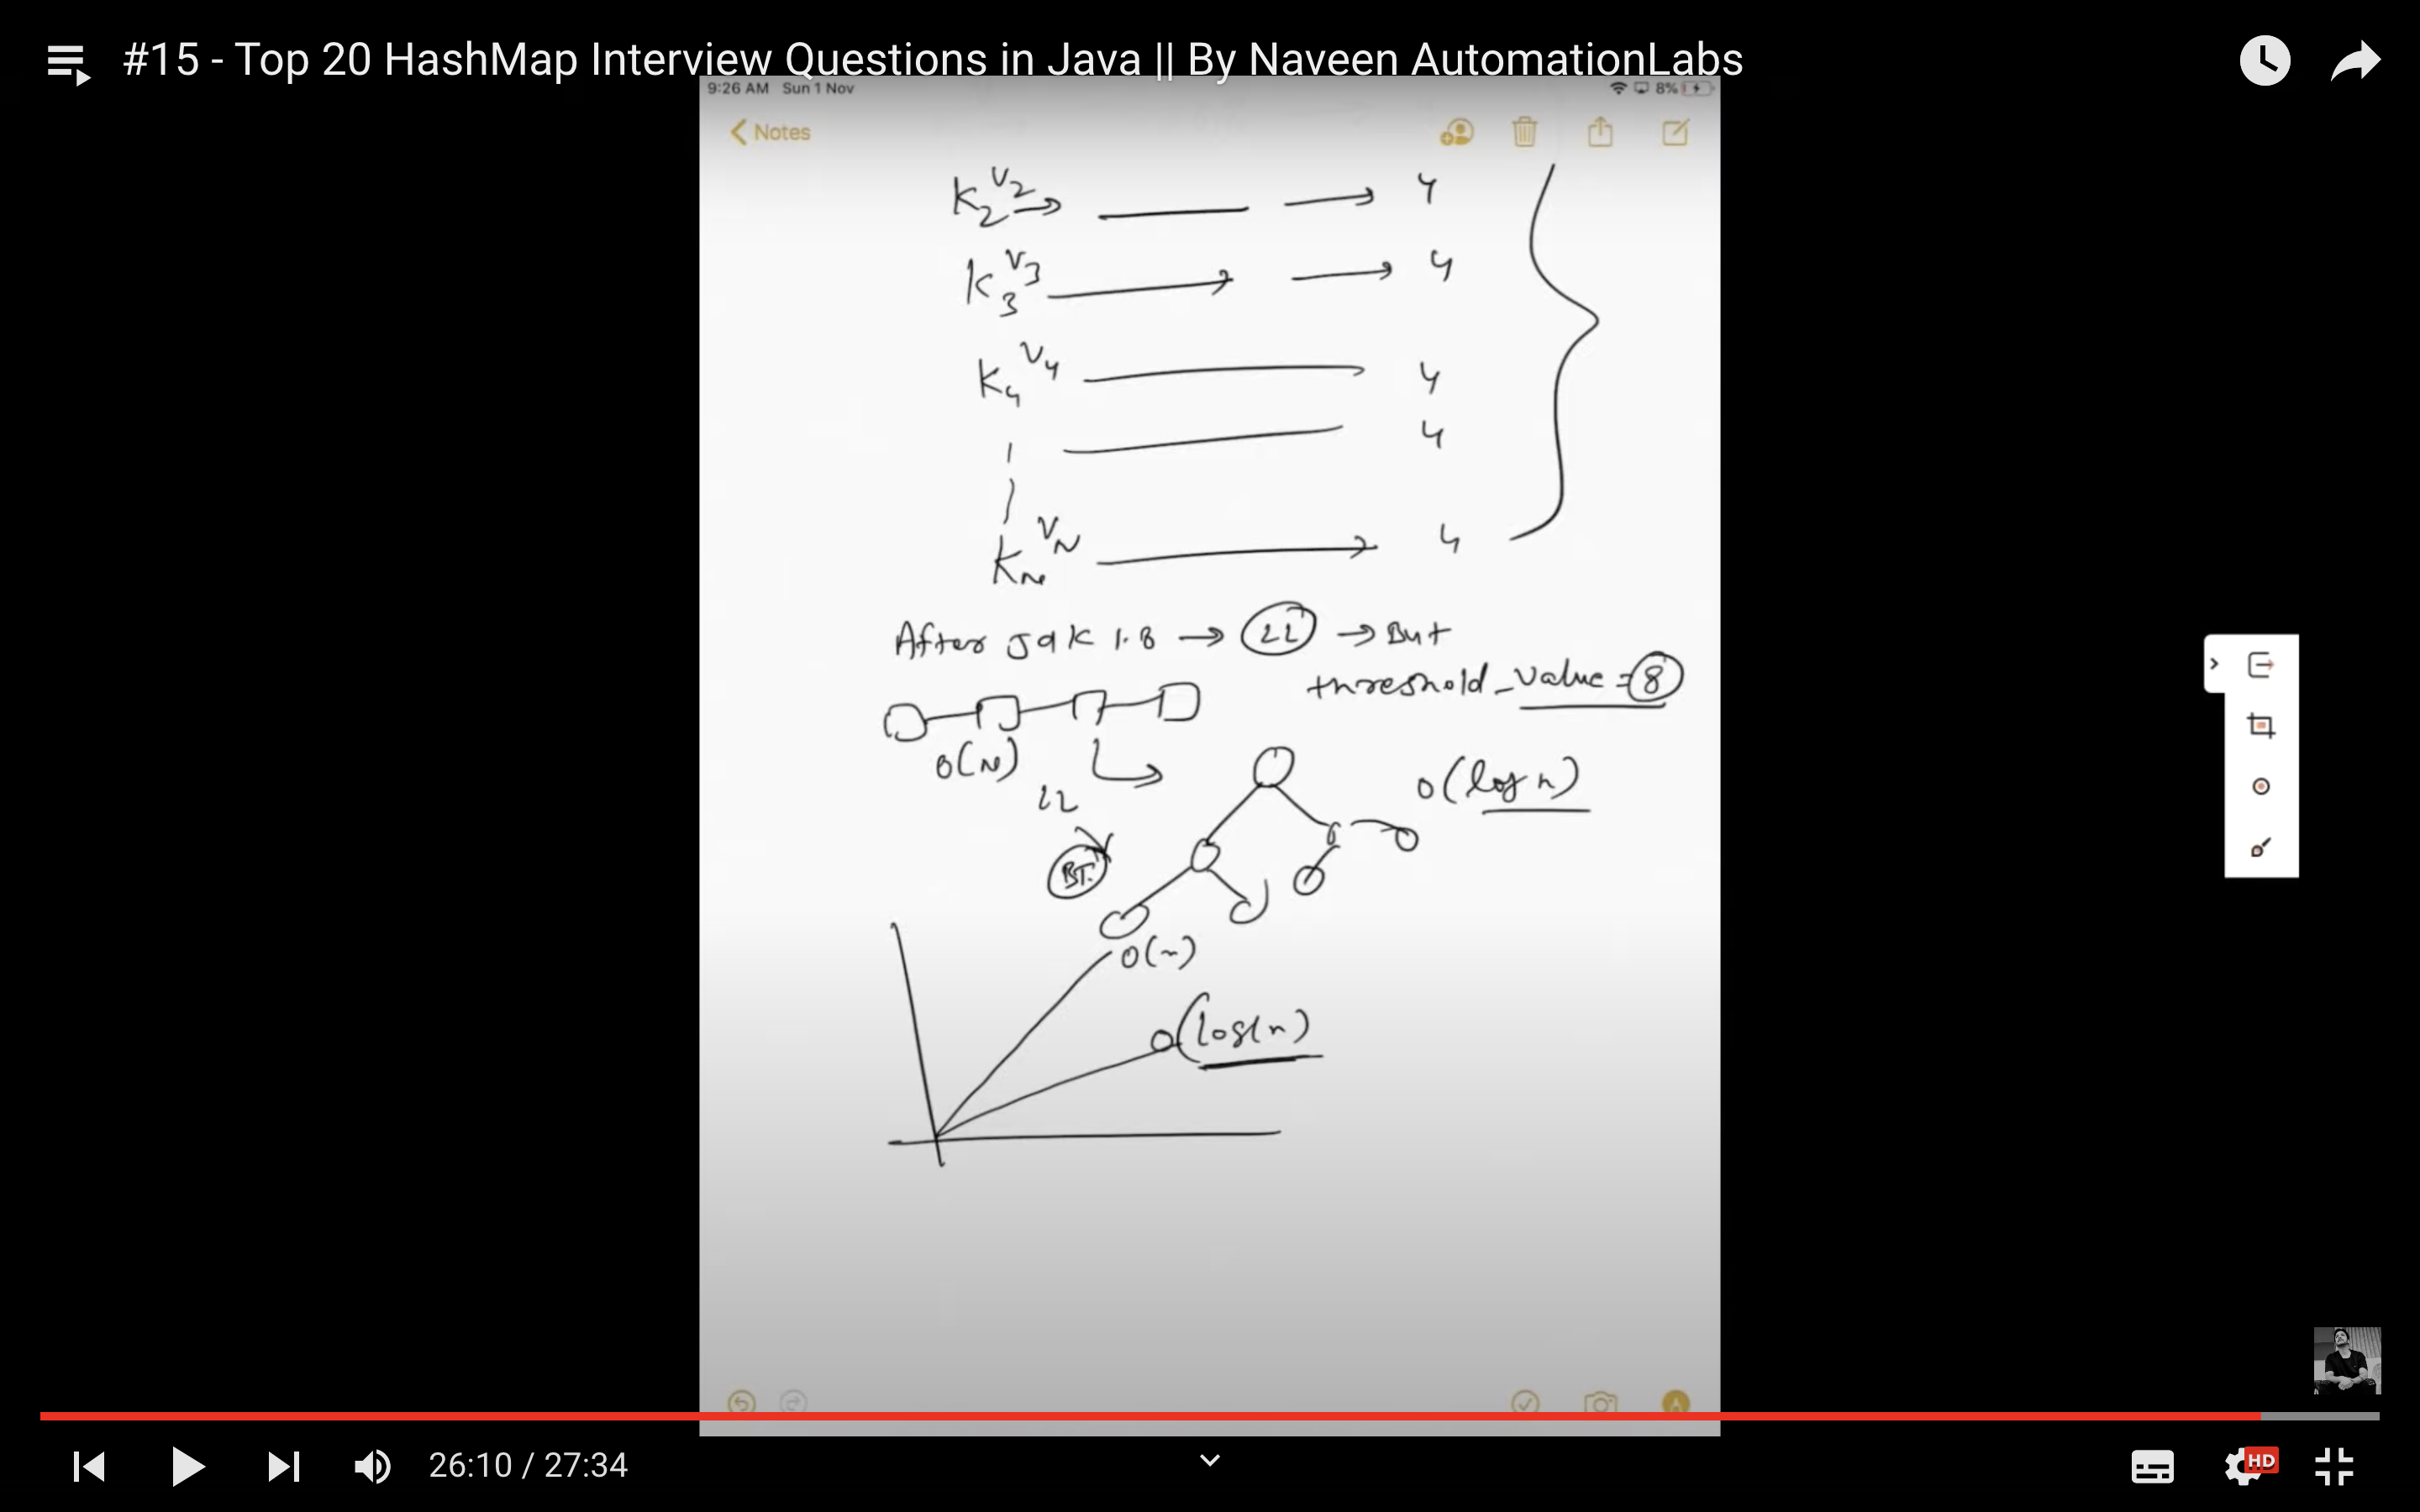 #15 - Top 20 HashMap Interview Questions in Java || By Naveen AutomationLabs
9:26 AM Sun 1 Nov
8%
Notes
K2 V2 4
K3 V3 4
K4 V4 4
4
Kn VN 4
After Jdk 1.8 → LL → But
threshold_value = 8
O(N)
LL
O(log n)
BT
O(n)
O(log(n)
26:10 / 27:34
HD